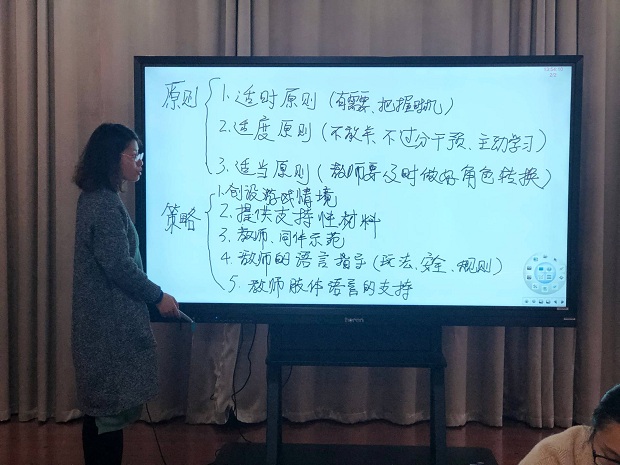 原则
1.适时原则（有需要、把握时机）
2.适度原则（不放弃、不过分干预、主动学习）
3.适当原则（教师要及时做好角色转换）
策略
1.创设游戏情境
2.提供支持性材料
3.教师、同伴示范
4.教师的语言指导（玩法、安全、规则）
5.教师肢体语言的支持